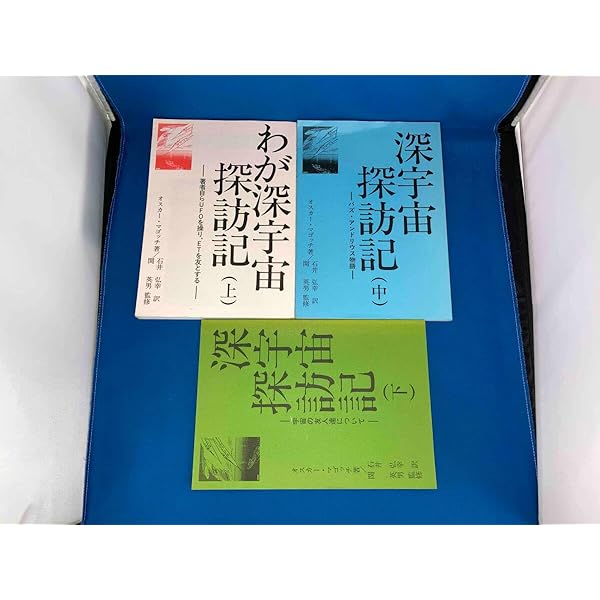 わが深宇宙
探訪記（上）
――著者自らＵＦＯを操り、ＥＴを友とする――
オスカー・マゴッチ著／石井弘幸訳
関英男監修
深宇宙
探訪記（中）
―バズ・アンドリウス物語―
オスカー・マゴッチ著／石井弘幸訳
関英男監修
深宇宙
探訪記（下）
―宇宙の友人達について―
オスカー・マゴッチ著／石井弘幸訳
関英男監修